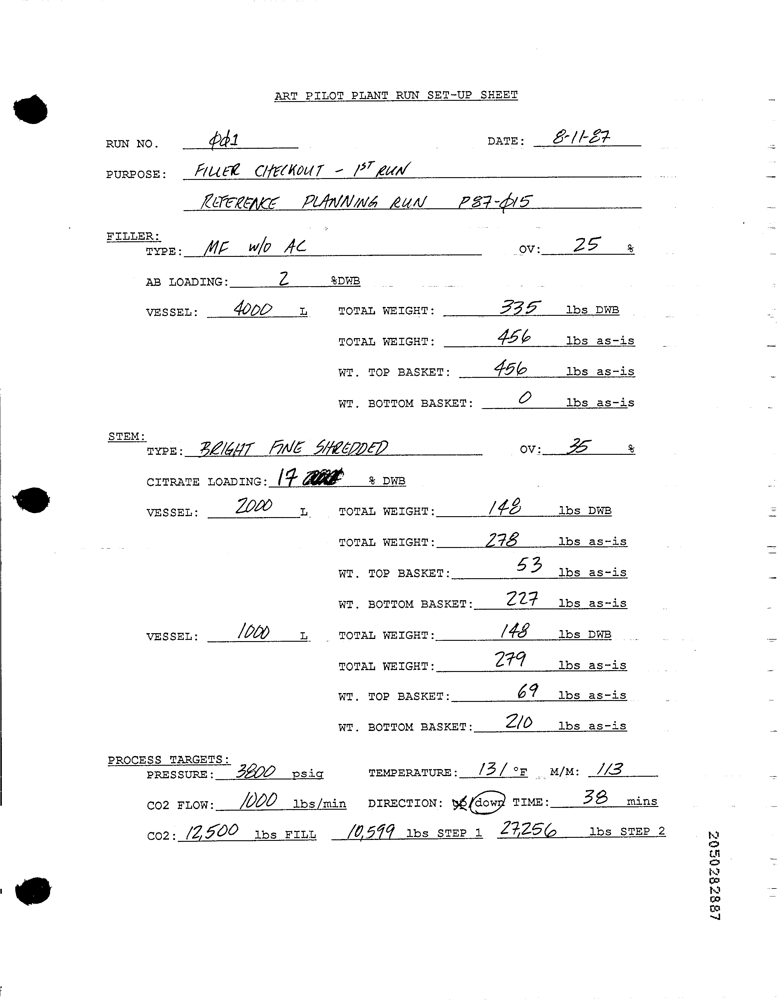 ART PILOT PLANT RUN SET-UP SHEET
RUN NO. φφ1 DATE: 8-11-87
PURPOSE: FILLER CHECKOUT - 1ST RUN
REFERENCE PLANNING RUN P87-φ15
FILLER:
TYPE: MF w/o AC OV: 25 %
AB LOADING: 2 %DWB
VESSEL: 4000 L TOTAL WEIGHT: 335 lbs DWB
TOTAL WEIGHT: 456 lbs as-is
WT. TOP BASKET: 456 lbs as-is
WT. BOTTOM BASKET: 0 lbs as-is
STEM:
TYPE: BRIGHT FINE SHREDDED OV: 35 %
CITRATE LOADING: 17 % DWB
VESSEL: 2000 L TOTAL WEIGHT: 148 lbs DWB
TOTAL WEIGHT: 278 lbs as-is
WT. TOP BASKET: 53 lbs as-is
WT. BOTTOM BASKET: 227 lbs as-is
VESSEL: 1000 L TOTAL WEIGHT: 148 lbs DWB
TOTAL WEIGHT: 279 lbs as-is
WT. TOP BASKET: 69 lbs as-is
WT. BOTTOM BASKET: 210 lbs as-is
PROCESS TARGETS:
PRESSURE: 3800 psig TEMPERATURE: 131 °F M/M: 113
CO2 FLOW: 1000 lbs/min DIRECTION: up/down TIME: 38 mins
CO2: 12,500 lbs FILL 10,599 lbs STEP 1 27,256 lbs STEP 2
2050282887